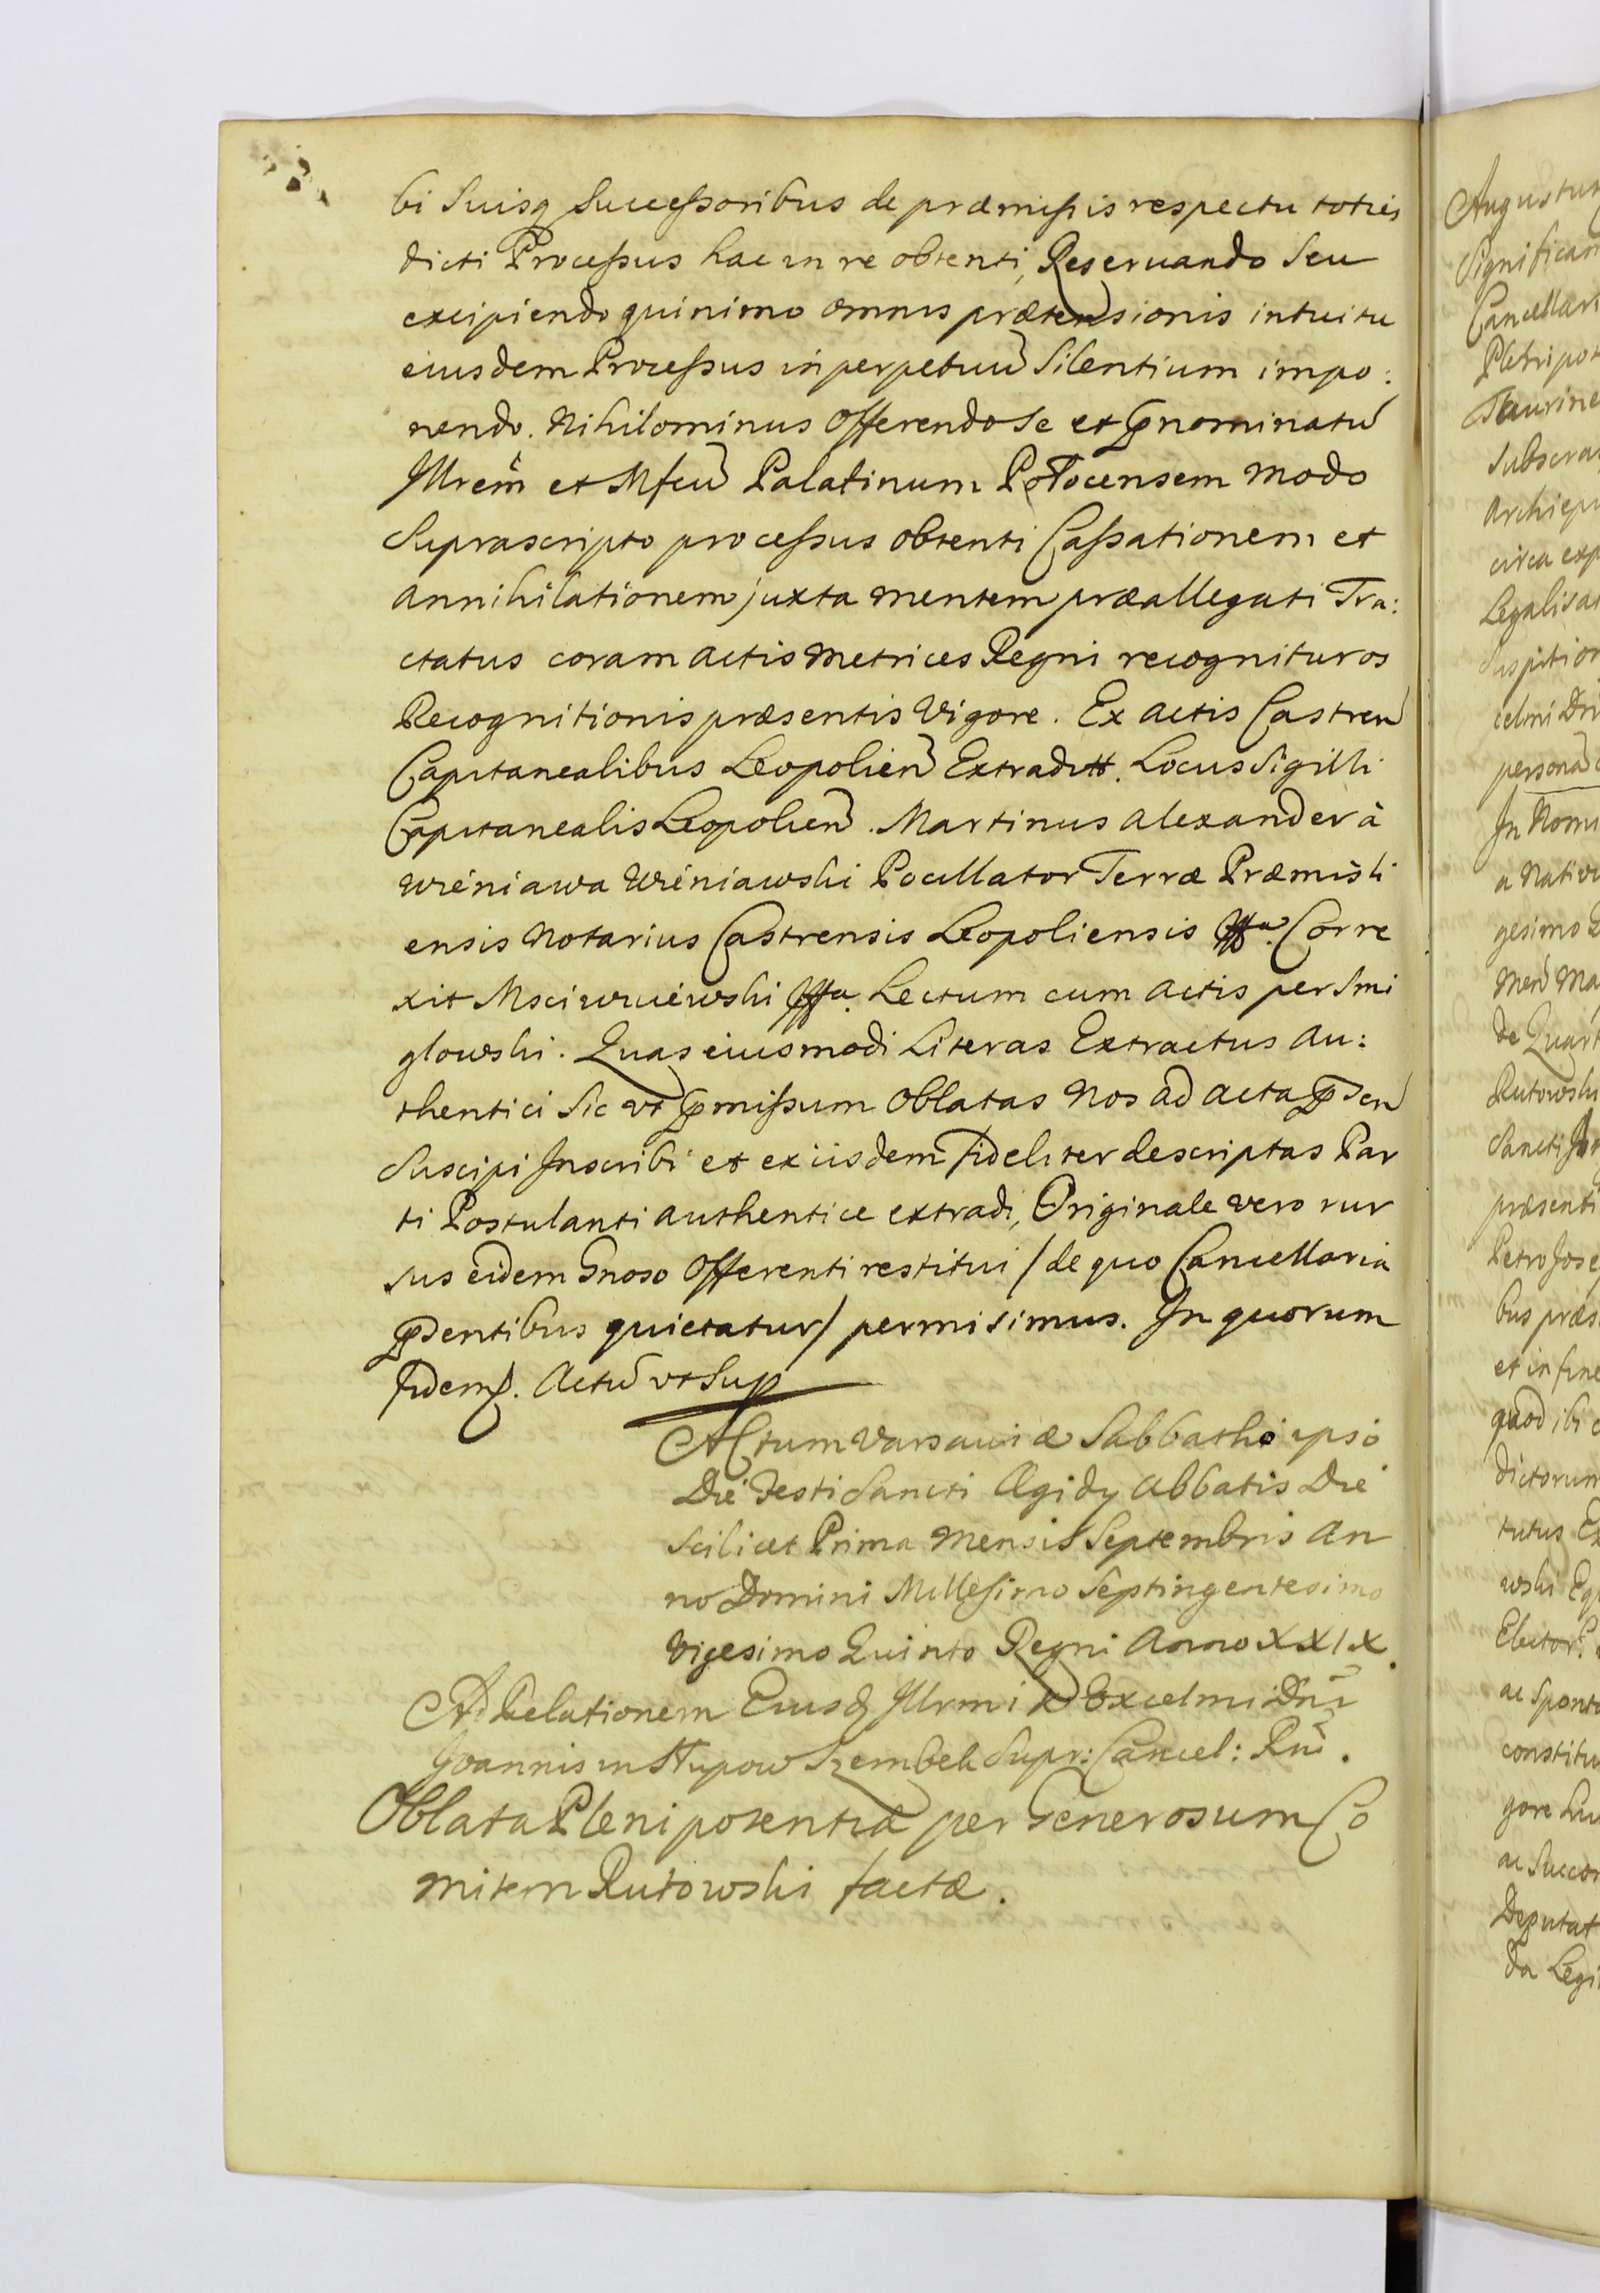 bi Suisq Successoribus de præmissis respectu toties
dicti Processus hac in re obtenti, Reseruando Seu
excipiendo quinimo omnis prætensionis intuitu
eiusdem Processus in perpetuũ Silentium impo:
nendo. Nihilominus Offerendo Se et pnominatũ
Jllrem̃ et Mfcũ Palatinum Potocensem modo
Suprascripto processus obtenti Cassationem et
annihilationem juxta mentem præallegati Tra:
ctatus coram actis Metrices Regni recognituros
Recognitionis præsentis Vigore. Ex actis Castren
Capitanealibus Leopolien Extraditt. Locus Sigilli
Capitanealis Leopolien. Martinus Alexander à
Wieniawa Wieniawski Pocillator Terræ Præmisli
ensis Notarius Castrensis Leopoliensis Corre
xit Msciwuiewski Lectum cum actis per Smi
glowski. Quas eiusmodi Literas Extractus Au:
thentici Sic vt pmissum Oblatas Nos ad acta psen
Suscipi Jnscribi et ex iisdem fideliter descriptas Par
ti Postulanti authentice extradi, Originale vero rur
sus eidem Gnoso Offerenti restitui / de quo Cancellaria
psentibus quietatur / permisimus. Jn quorum
fidem. Actũ vt Sup
Actum Varsauiæ Sabbatho ipso
Die Festi Sancti Ægidy Abbatis Die
Scilicet Prima Mensis Septembris An
no Domini Millesimo Septingentesimo
Vigesimo Quinto Regni Anno XXIX.
Ad Relationem Eiusd Jllrmi & Excelmi Dni
Joannis in Słupow Szembek Supr: Cancel: Rni.
Oblata Plenipotentiæ per Generosum Co
mitem Rutowski factæ.
Augustus
Significam
Cancellari
Plenipot
Taurine
Subscra
Archiep
circa exp
Legalisa
Suspition
celmi Dn
personã
Jn Nomi
a Nativi
gesimo
Men Ma
de Quart
Rutowski
Sancti
præsenti
Petro Jose
bus præs
et in fine
quod ibi
dictorum
tutus Ex
wski Equ
Elector:
ac Sponte
constitu
gore
ac Succes
Deputat
da Legi